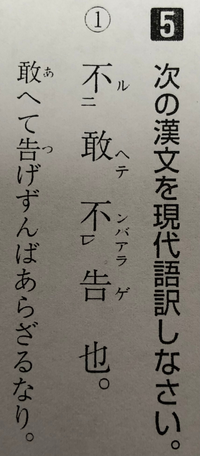 5 次の漢文を現代語訳しなさい。
① 不ル二敢ヘテ不ンバアラレ告ゲ也。
敢あへて告つげずんばあらざるなり。